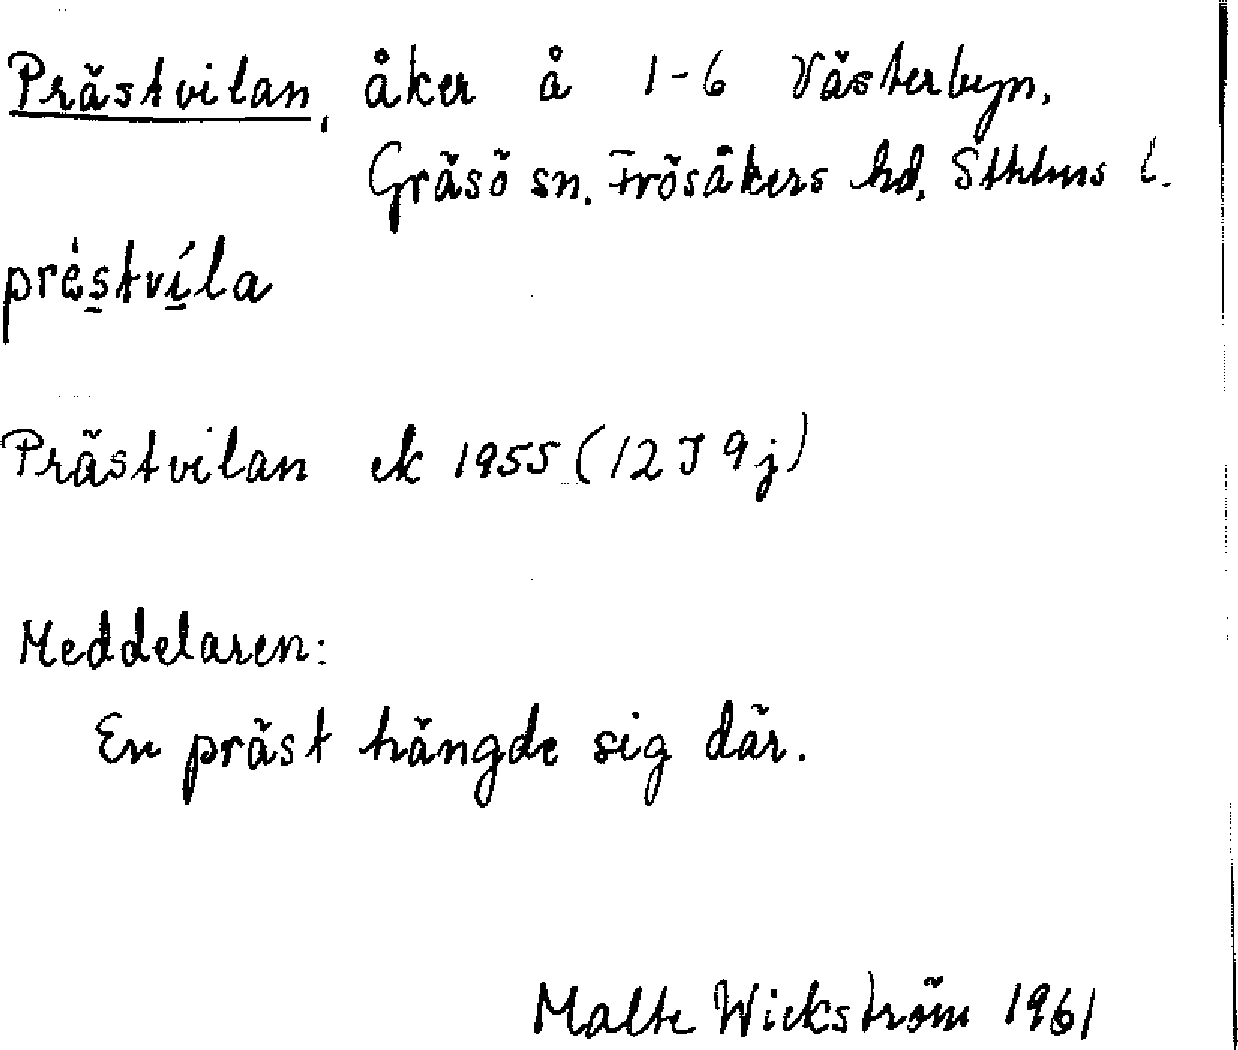 Prästvilan, åker å 1-6 Västerbyn,
Gräsö sn. Frösåkers hd, Sthlms l.
prèstvíla
Prästvilan ek 1955 (12 J 9 j)
Meddelaren:
En präst hängde sig där.
Malte Wickström 1961